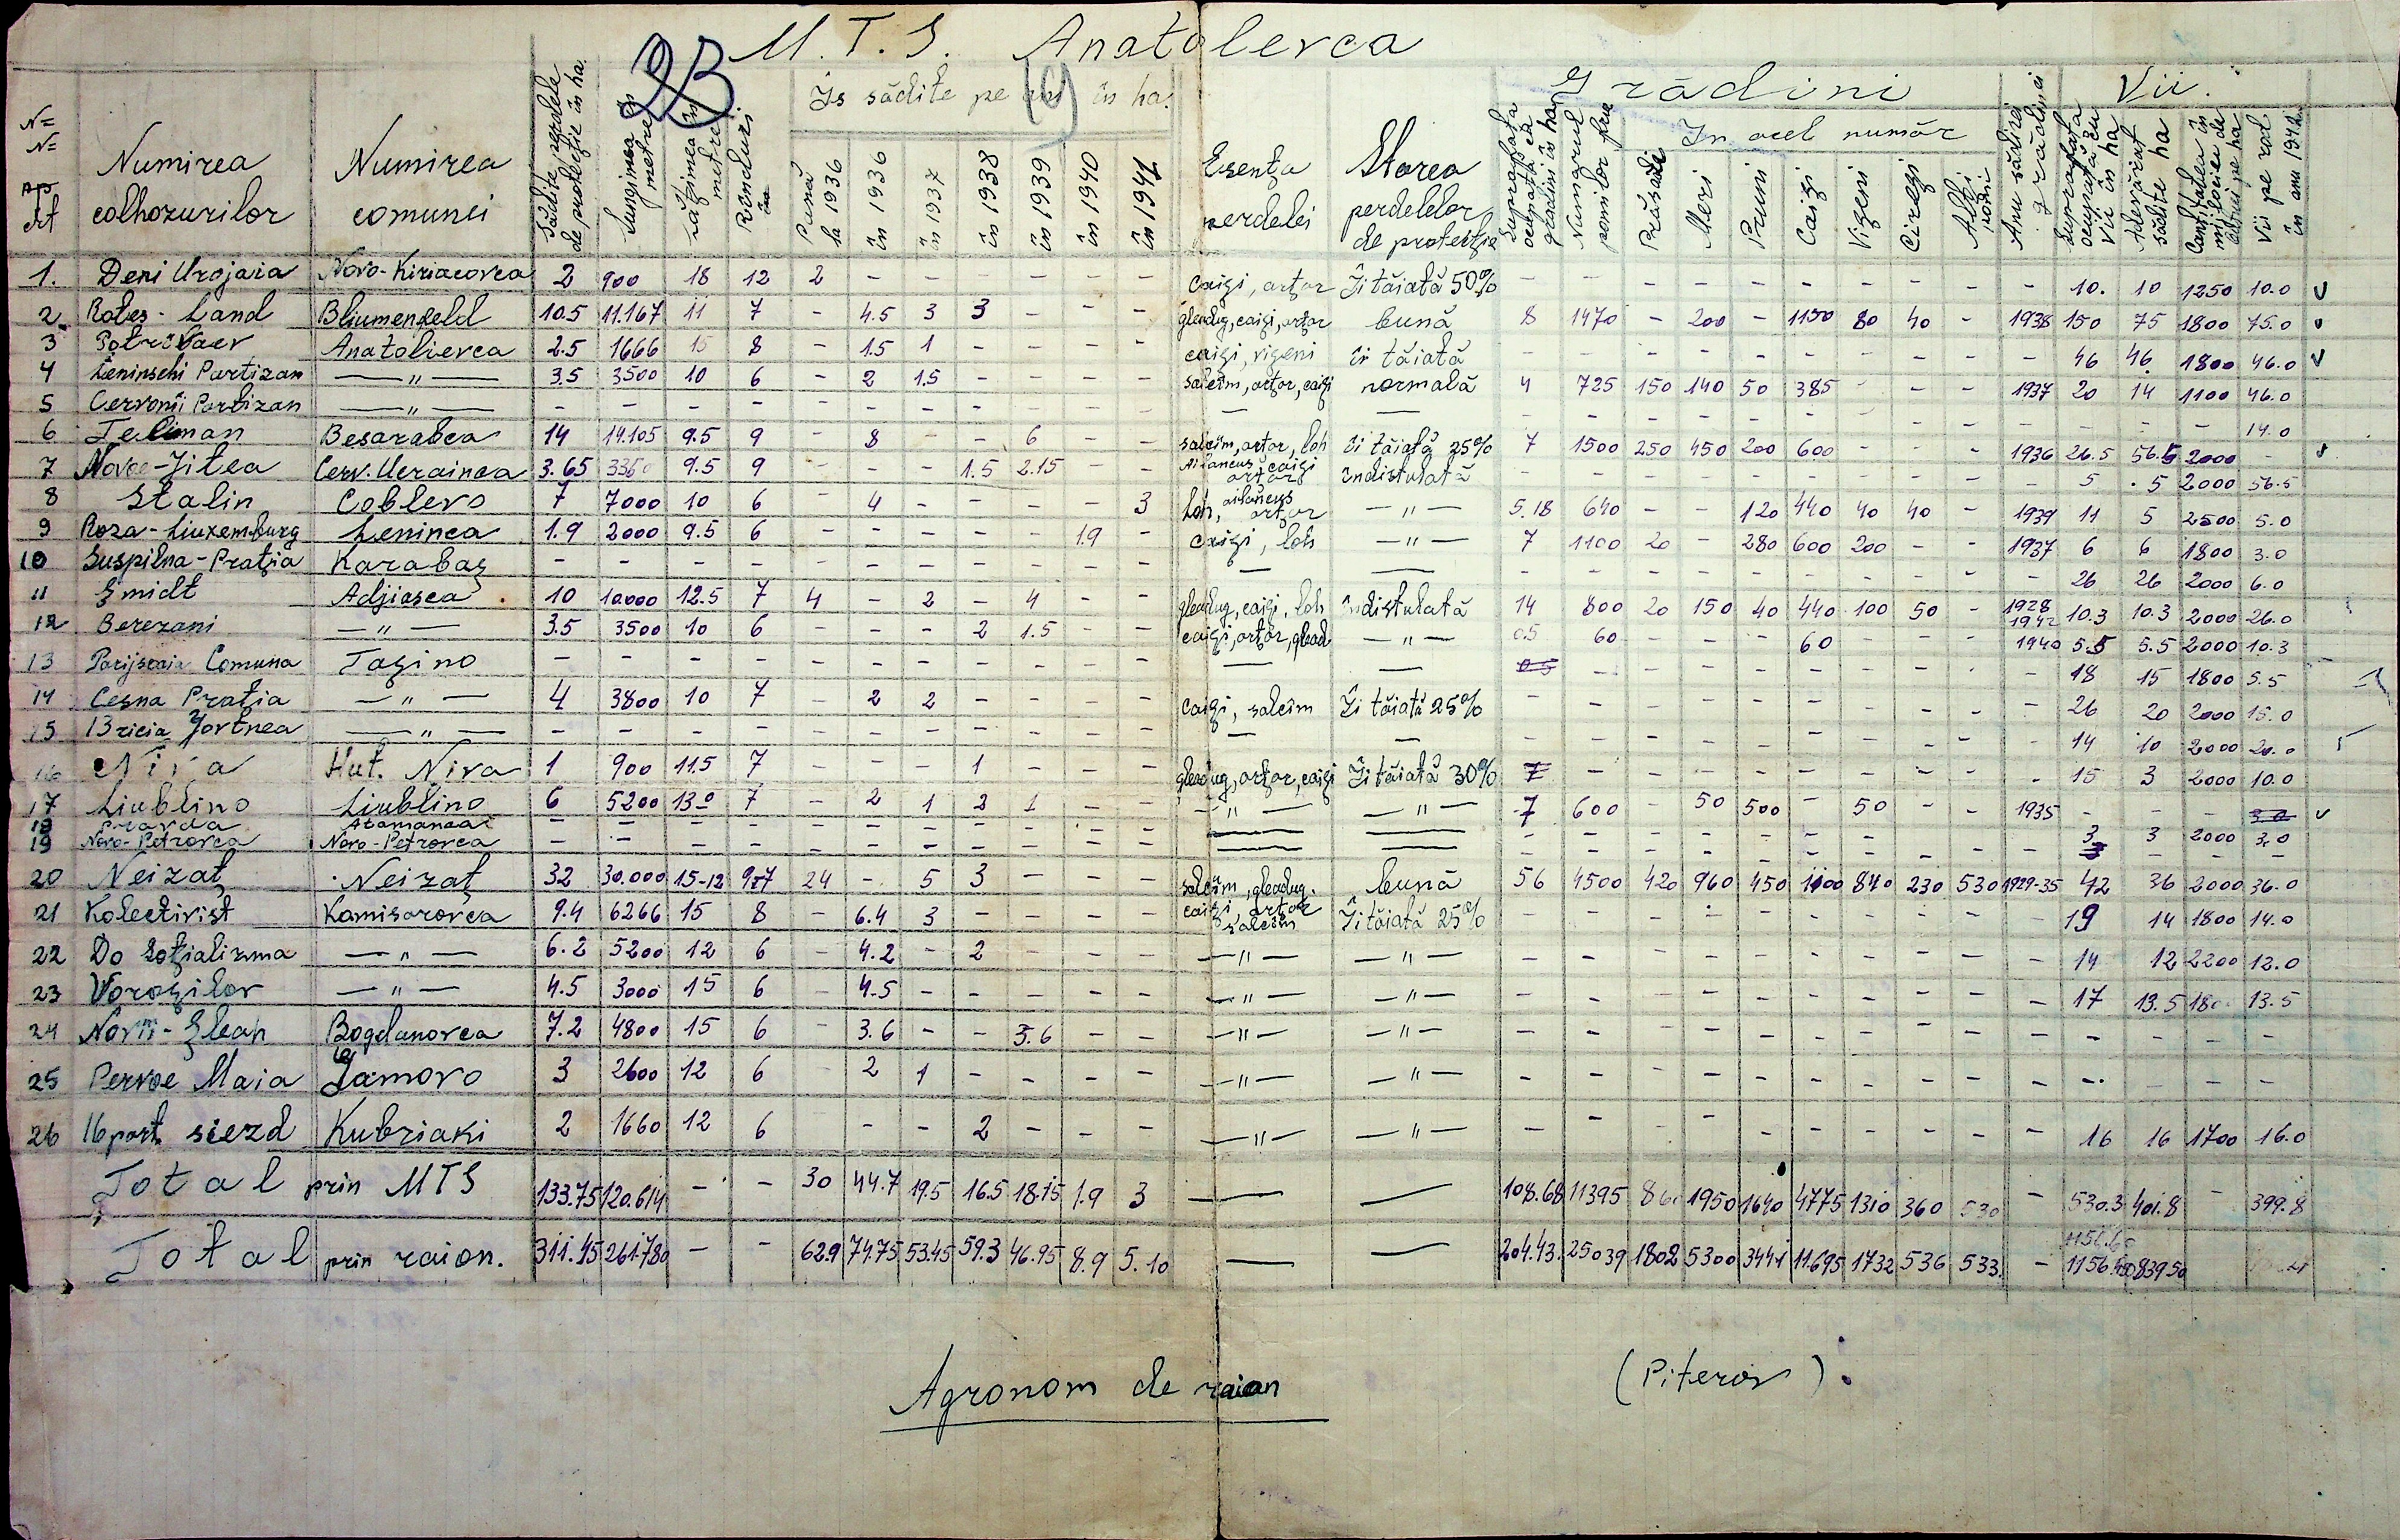 M. T. S. Anatolevca
23
Îs sădite pe ani în ha.
Grădini
Vii.
N= N= ap. dt
Numirea colhozurilor
Numirea comunei
Sădite perdele de protecţie în ha.
Lungimea în metre
Lăţimea în metre
Rînduri
Pană la 1936
în 1936
în 1937
în 1938
în 1939
în 1940
în 1941
Esenţa perdelei
Starea perdelelor de protecţie
Suprafaţa ocupată cu grădini în ha
Numărul pomilor
In acel număr
Prăsade
Meri
Pruni
Caişi
Vişeni
Cireşi
Alţi pomi
Anu sădirei grădinei
Suprafaţa ocupată cu vii în ha
Adevărat sădite ha
Cantitatea în mijlociu de pe ha
Vii pe rod în anu 1942
1. Deni Urojaia Novo-Kiriacovca 2 900 18 12 2 - - - - - - caişi, arţar Îi tăiată 50% - - - - - - - - - - 10. 10 1250 10.0 v
2. Rotes-Land Bliumenfeld 10.5 11.167 11 7 - 4.5 3 3 - - - gleadug, caişi, arţar bună 8 1470 - 200 - 1150 80 40 - 1938 150 75 1800 75.0 v
3 Anatolievca 2.5 1666 15 8 - 1.5 1 - - - - caişi, vişeni îi tăiată - - - - - - - - - - 46 46 1800 46.0 v
4 Leninschi Partizan — " — 3.5 3500 10 6 - 2 1.5 - - - - salcîm, arţar, caişi normală 4 725 150 140 50 385 - - - 1937 20 14 1100 46.0
5 Cervonîi Partizan — " — - - - - - - - - - - - — — - - - - - - - - - - - - - 14.0
6 Teliman Besarabca 14 14.105 9.5 9 - 8 - - 6 - - salcîm, arţar, loh îi tăiată 25% 7 1500 250 450 200 600 - - - 1936 26.5 56.5 2000 - v
7 Novoe-Jitea Cerv. Ucrainca 3.65 3350 9.5 9 - - - 1.5 2.15 - - Ailancus, caişi arţar îndistulată - - - - - - - - - - 5 5 2000 56.5
8 Stalin Coblevo 7 7000 10 6 - 4 - - - - 3 Loh, ailancus arţar — " — 5.18 640 - - 120 440 40 40 - 1939 11 5 2500 5.0
9 Roza-Liuxemburg Leninca 1.9 2000 9.5 6 - - - - - 1.9 - caişi, loh — " — 7 1100 20 - 280 600 200 - - 1937 6 6 1800 3.0
10 Suspilna-Praţia Karabaş - - - - - - - - - - - — — - - - - - - - - - - 26 26 2000 6.0
11 Şmidt Adjiasca 10 10000 12.5 7 4 - 2 - 4 - - gleadug, caişi, loh îndistulată 14 800 20 150 40 440 100 50 - 1928 1942 10.3 10.3 2000 26.0
12 Berezani — " — 3.5 3500 10 6 - - - 2 1.5 - - caişi, arţar, glead — " — 0.5 60 - - - 60 - - - 1940 5.5 5.5 2000 10.3
13 Parijscaia Comuna Taşino - - - - - - - - - - - — — 0.5 - - - - - - - - - 18 15 1800 5.5
14 Cesna Pratia — " — 4 3800 10 7 - 2 2 - - - - caişi, salcîm Îi tăiată 25% - - - - - - - - - - 26 20 2000 15.0
15 13 ricia Jovtnea — " — - - - - - - - - - - - — — - - - - - - - - - - 14 10 2000 20.0
16 Niva Hut. Niva 1 900 11.5 7 - - - 1 - - - gleadug, arţar, caişi Îi tăiată 30% 7 - - - - - - - - - 15 3 2000 10.0
17 Liublino Liublino 6 5200 13.0 7 - 2 1 2 1 - - — " — — " — 7 600 - 50 500 - 50 - - 1935 - - - 3.0 v
18 Pravda Atamanca - - - - - - - - - - - — — - - - - - - - - - - 3 3 2000 3.0
19 Novo-Petrovca Novo-Petrovca - - - - - - - - - - - — — - - - - - - - - - - 3 - - -
20 Neizaţ Neizaţ 32 30.000 15-12 9-7 24 - 5 3 - - - salcîm, gleadug. bună 56 4500 420 960 450 1100 840 230 530 1929-35 42 36 2000 36.0
21 Kolectivist Kamisarovca 9.4 6266 15 8 - 6.4 3 - - - - caişi arţar salcîm Îi tăiată 25% - - - - - - - - - - 19 14 1800 14.0
22 Do Soţializma — " — 6.2 5200 12 6 - 4.2 - 2 - - - — " — — " — - - - - - - - - - - 14 12 2200 12.0
23 Voroşilov — " — 4.5 3000 15 6 - 4.5 - - - - - — " — — " — - - - - - - - - - - 17 13.5 180 13.5
24 Novîi-Şleah Bogdanovca 7.2 4800 15 6 - 3.6 - - 3.6 - - — " — — " — - - - - - - - - - - - - - -
25 Pervoe Maia Lamovo 3 2600 12 6 2 1 - - - - — " — — " — - - - - - - - - - - - - - -
26 16 part. siezd Kubriaki 2 1660 12 6 - - 2 - - - — " — — " — - - - - - - - - - - 16 16 1700 16.0
Total prin MTS 133.75 120.614 - - 30 44.7 19.5 16.5 18.15 1.9 3 — — 108.68 11395 860 1950 1640 4775 1310 360 530 - 530.3 401.8 - 399.8
Total prin raion. 311.45 261.780 - - 62.9 74.75 53.45 59.3 46.95 8.9 5.10 — — 204.43. 25039 1802 5300 3444 11.695 1732 536 533. - 1156.60 839.50
Agronom de raion (Piterov).